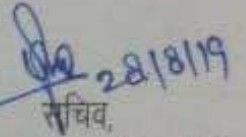 28/8/19
सचिव,